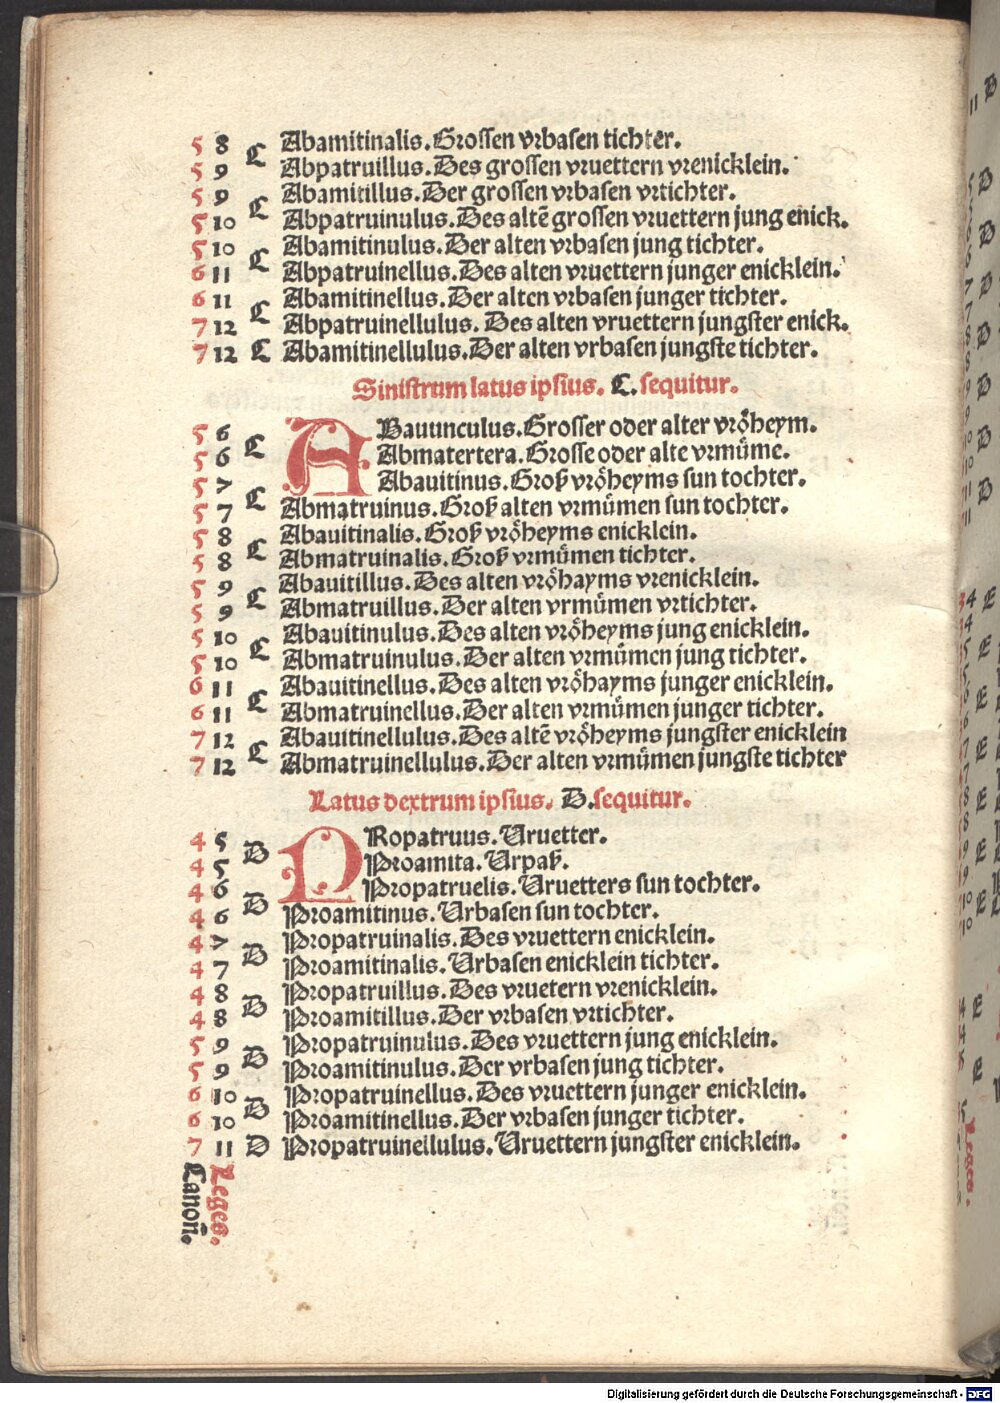 5 8 C Abamitinalis. Grossen vrbasen tichter.
5 9 Abpatruillus. Des grossen vruettern vrenicklein.
5 9 C Abamitillus. Der grossen vrbasen vrtichter.
5 10 Abpatruinulus. Des altē grossen vruettern jung enick.
5 10 C Abamitinulus. Der alten vrbasen jung tichter.
6 11 Abpatruinellus. Des alten vruettern junger enicklein.
6 11 C Abamitinellus. Der alten vrbasen junger tichter.
7 12 Abpatruinellulus. Des alten vruettern jungster enick.
7 12 C Abamitinellulus. Der alten vrbasen jungste tichter.
Sinistrum latus ipsius. C. sequitur.
5 6 C ABauunculus. Grosser oder alter vröheym.
5 6 Abmatertera. Grosse oder alte vrmüme.
5 7 C Abauitinus. Groß vröheyms sun tochter.
5 7 Abmatruinus. Groß alten vrmümen sun tochter.
5 8 C Abauitinalis. Groß vröheyms enicklein.
5 8 Abmatruinalis. Groß vrmümen tichter.
5 9 C Abauitillus. Des alten vröhayms vrenicklein.
5 9 Abmatruillus. Der alten vrmümen vrtichter.
5 10 C Abauitinulus. Des alten vröheyms jung enicklein.
5 10 Abmatruinulus. Der alten vrmümen jung tichter.
6 11 C Abauitinellus. Des alten vröhayms junger enicklein.
6 11 Abmatruinellus. Der alten vrmümen junger tichter.
7 12 C Abauitinellulus. Des altē vröheyms jungster enicklein
7 12 Abmatruinellulus. Der alten vrmümen jungste tichter
Latus dextrum ipsius. D. sequitur.
4 5 D PRopatruus. Vruetter.
4 5 Proamita. Vrpaß.
4 6 D Propatruelis. Vruetters sun tochter.
4 6 Proamitinus. Vrbasen sun tochter.
4 7 D Propatruinalis. Des vruettern enicklein.
4 7 Proamitinalis. Vrbasen enicklein tichter.
4 8 D Propatruillus. Des vruetern vrenicklein.
4 8 Proamitillus. Der vrbasen vrtichter.
5 9 D Propatruinulus. Des vruettern jung enicklein.
5 9 Proamitinulus. Der vrbasen jung tichter.
6 10 D Propatruinellus. Des vruettern junger enicklein.
6 10 Proamitinellus. Der vrbasen junger tichter.
7 11 D Propatruinellulus. Vruettern jungster enicklein.
Leges.
Canoñ.
Digitalisierung gefördert durch die Deutsche Forschungsgemeinschaft - DFG